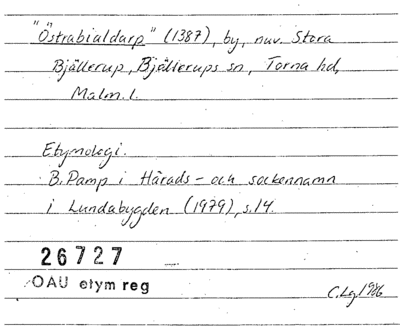 "Östrabialdarp" (1387), by, nuv. Stora
Bjällerup, Bjällerups sn, Torna hd,
Malm. l.
Etymologi.
B. Pamp i Härads- och sockennamn
i Lundabygden (1979), s. 14.
26727
OAU etym reg
C. Lg 1986